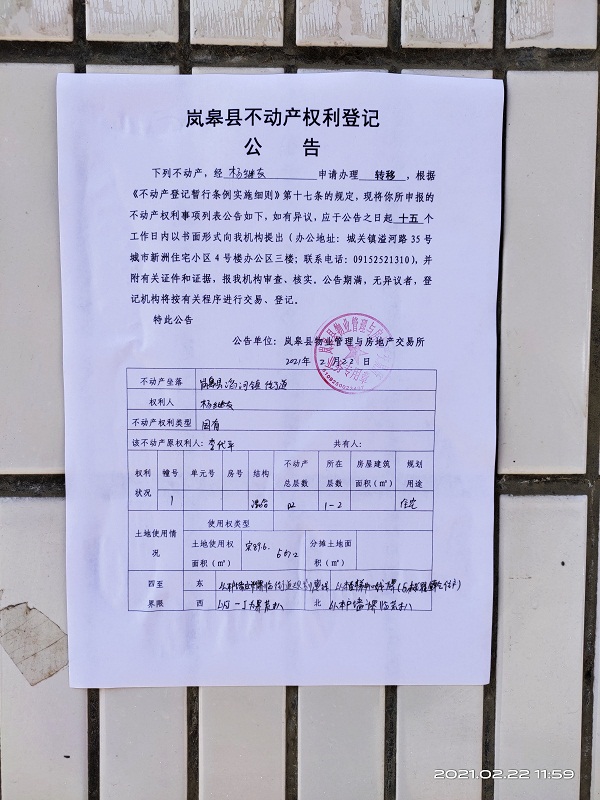 岚皋县不动产权利登记
公 告
下列不动产，经 杨继友 申请办理 转移 ，根据
《不动产登记暂行条例实施细则》第十七条的规定，现将你所申报的
不动产权利事项列表公告如下，如有异议，应于公告之日起 十五 个
工作日内以书面形式向我机构提出（办公地址：城关镇溢河路 35 号
城市新洲住宅小区 4 号楼办公区三楼；联系电话：09152521310），并
附有关证件和证据，报我机构审查、核实。公告期满，无异议者，登
记机构将按有关程序进行交易、登记。
特此公告
公告单位：岚皋县物业管理与房地产交易所
2021年 2月22 日
不动产坐落 岚皋县 河镇
权利人 杨继友
不动产权利类型 国有
该不动产原权利人：李代平 共有人：
权利状况 幢号 单元号 房号 结构 不动产总层数 所在层数 房屋建筑面积（㎡） 规划用途
1 混合 02 1-2 住宅
土地使用情况 使用权类型
土地使用权面积（㎡） 分摊土地面积（㎡）
四至界限 东 南
西 北
2021.02.22 11:59